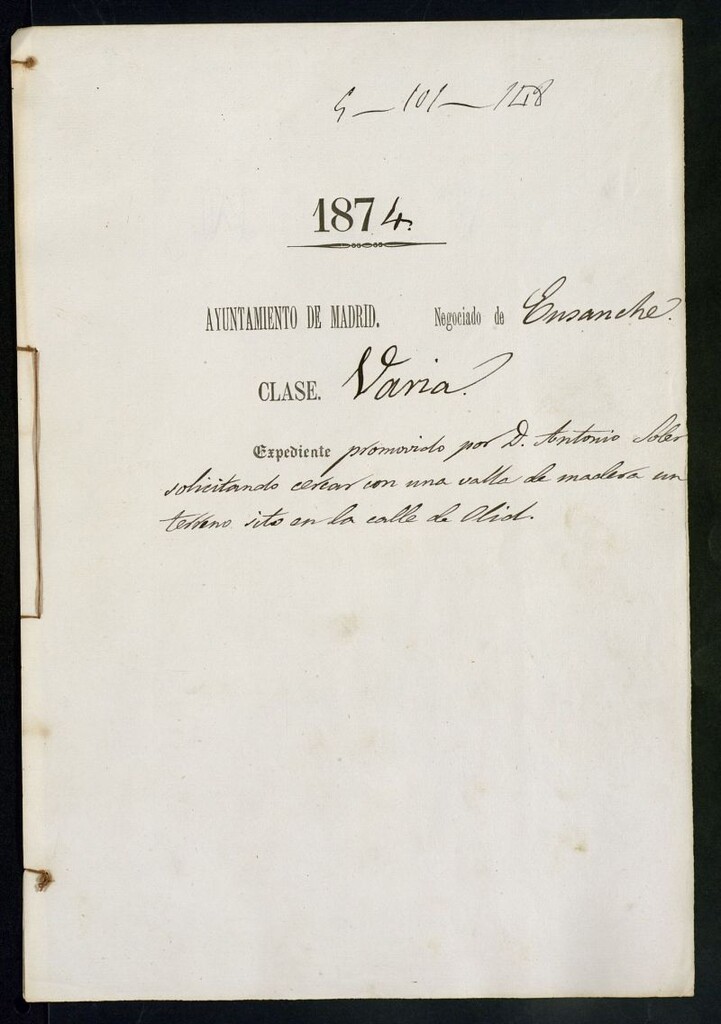 5 – 101 – 148
1874.
AYUNTAMIENTO DE MADRID. Negociado de Ensanche.
CLASE. Varia.
Expediente promovido por D. Antonio Soler
solicitando cercar con una valla de madera un
terreno sito en la calle de Olid.